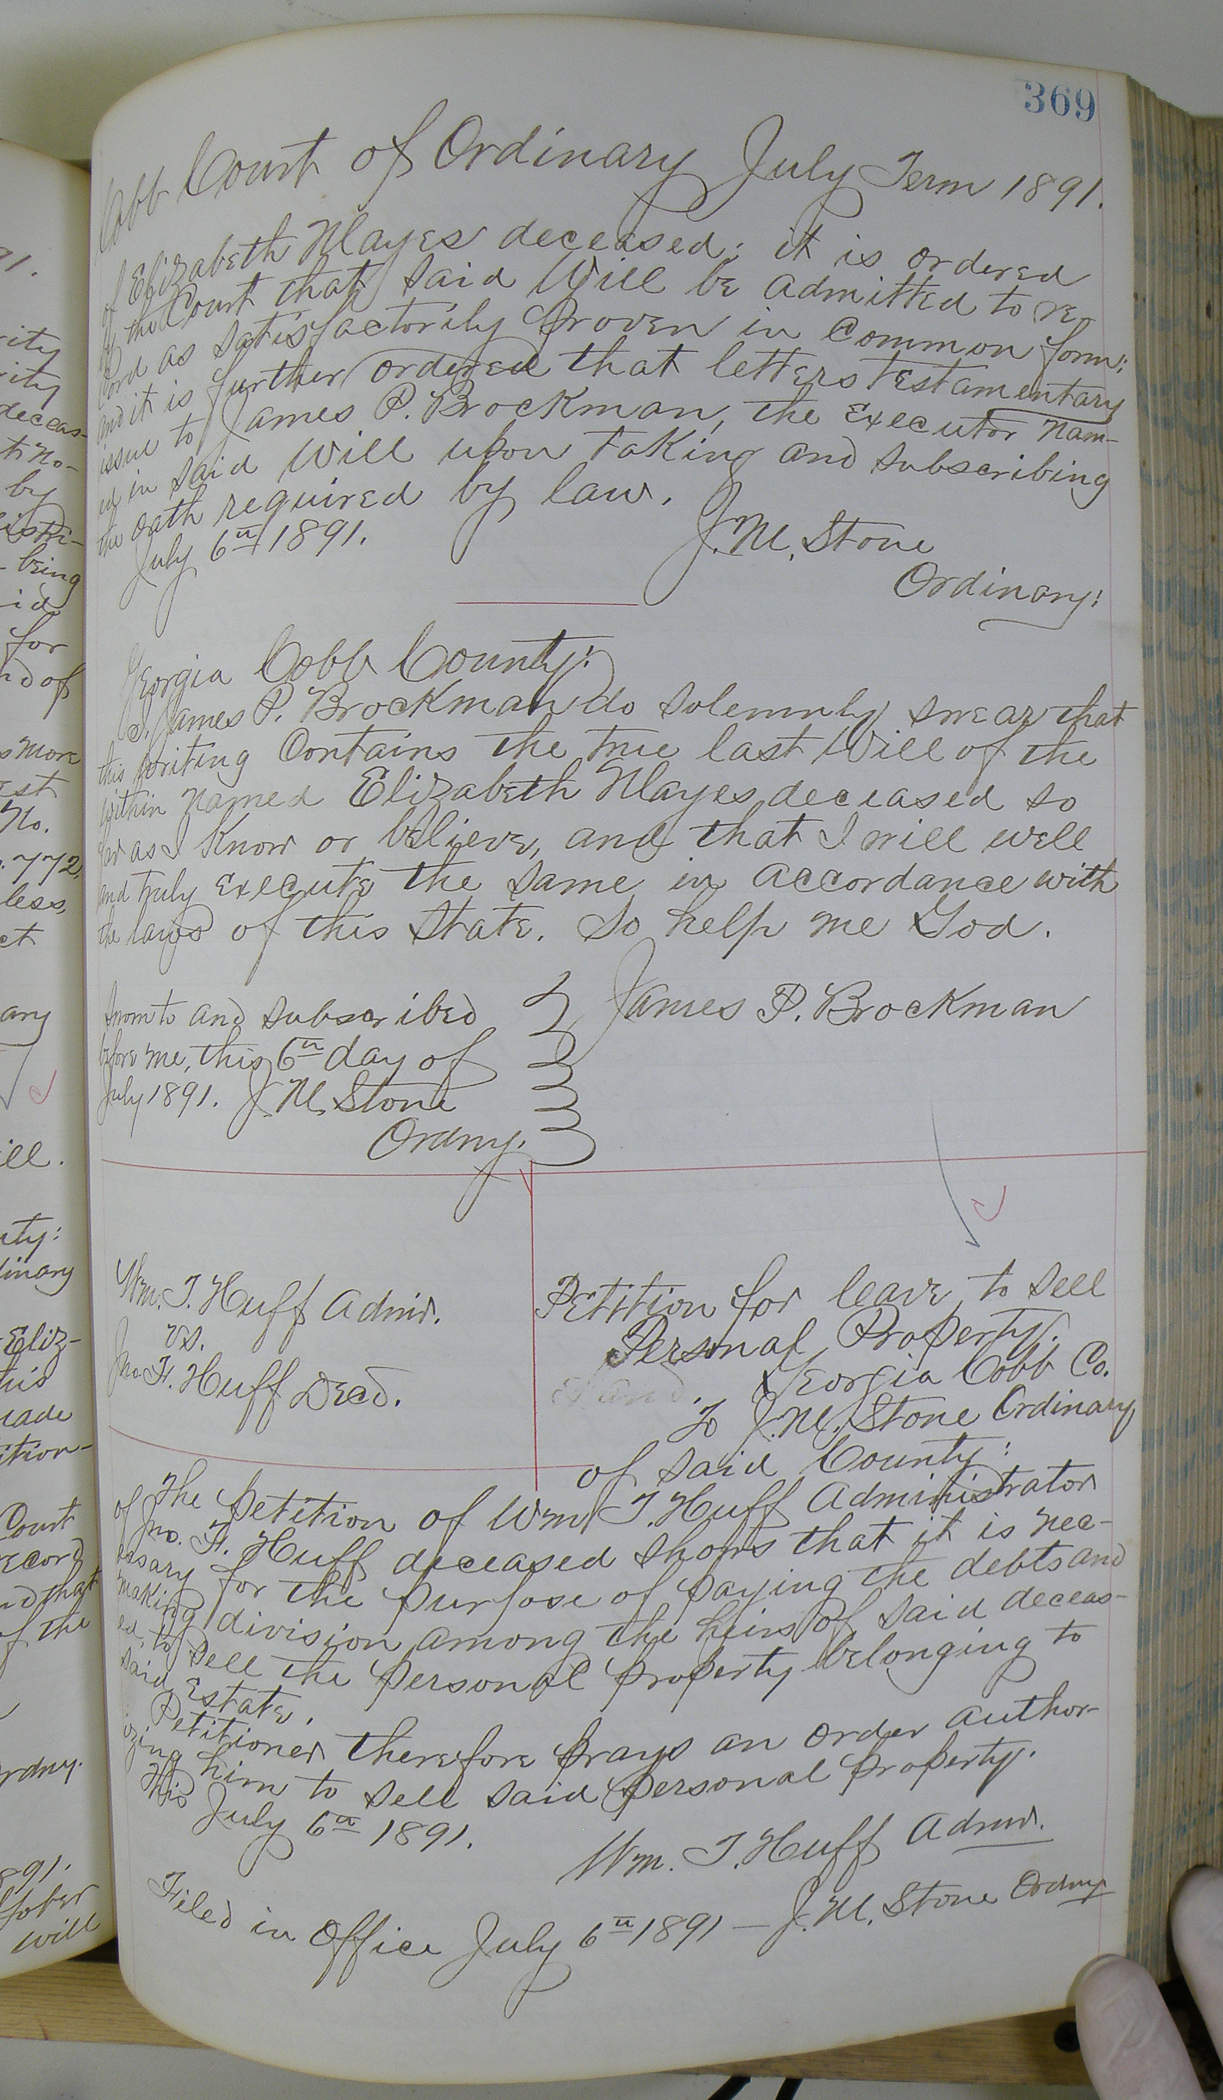 369
Cobb Court of Ordinary July Term 1891.
of Elizabeth Mayes deceased; it is ordered
by the Court that said Will be admitted to re-
cord as satisfactorily proven in common form:
and it is further ordered that letters testamentary
issue to James P. Brockman, the executor nam-
ed in said Will upon taking and subscribing
the oath required by law.
July 6th 1891.
J. M. Stone
Ordinary:
Georgia Cobb County:
I, James P. Brockman do solemnly swear that
this writing contains the true last Will of the
within named Elizabeth Mayes deceased so
far as I know or believe, and that I will well
and truly execute the same in accordance with
the laws of this State. So help me God.
James P. Brockman
Sworn to and subscribed
before me, this 6th day of
July 1891. J. M. Stone
Ordny.
Wm. T. Huff Admr.
vs.
Jno. F. Huff Decd.
Petition for leave to sell
Personal Property.
Georgia Cobb Co.
To J. M. Stone Ordinary
of said County:
The petition of Wm T. Huff Administrator
of Jno. F. Huff deceased shows that it is nec-
essary for the purpose of paying the debts and
making division among the heirs of said deceas-
ed, to sell the personal property belonging to
said estate.
Petitioner therefore prays an order author-
izing him to sell said personal property.
This July 6th 1891.
Wm. T. Huff Admr.
Filed in Office July 6th 1891 — J. M. Stone Ordny
91.
rity
rity
deceas-
to no-
by
being
id
for
nd of
s more
est
No.
772,
less,
ct
ary
ill.
nty:
dinary
Eliz-
this
made
ition-
Court
record
nd that
of the
rdny.
891.
tober
will